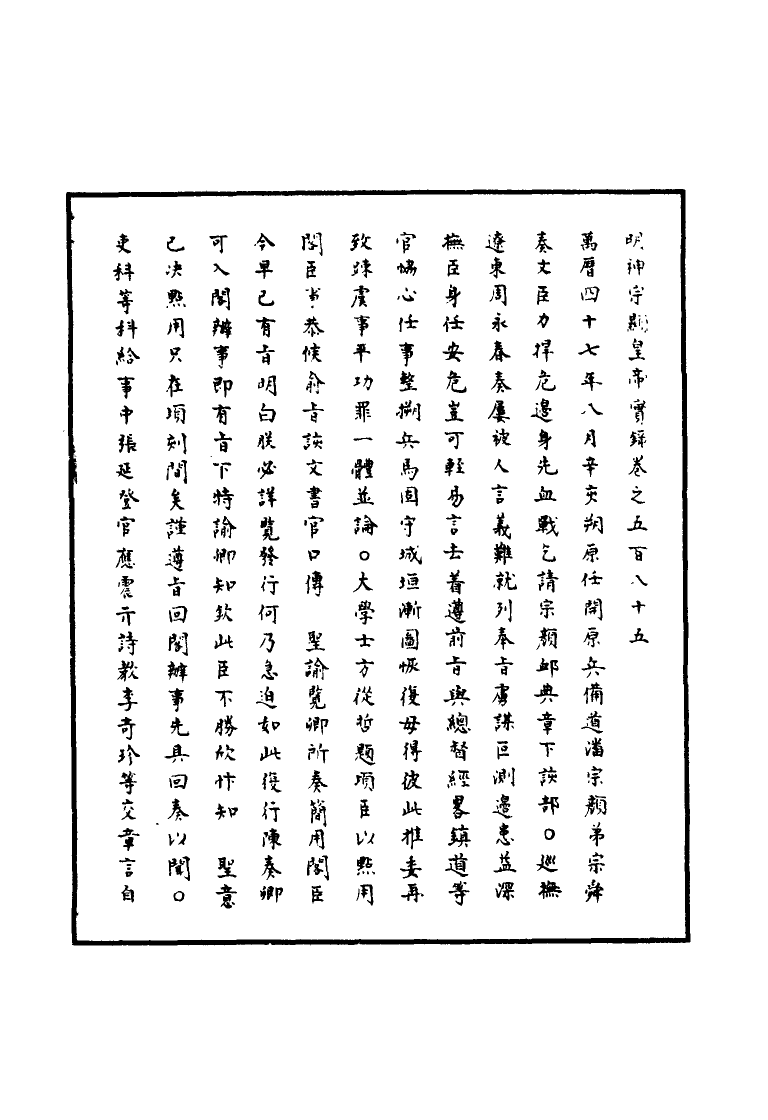 明神宗顯皇帝實錄卷之五百八十五
萬曆四十七年八月辛亥朔原任開原兵備道潘宗顏弟宗舜
奏文臣力捍危邊身先血戰乞請宗顏卹典章下該部○巡撫
遼東周永春奏屢被人言義難就列奉旨虜謀叵測邊患益深
撫臣身任安危豈可輕易言去着遵前旨與總督經畧鎮道等
官恊心任事整搠兵馬固守城垣漸圖恢復毋得彼此推委再
致疎虞事平功罪一體並論○大學士方從哲題頃臣以點用
閣臣事恭候俞旨該文書官口傳　聖諭覽卿所奏簡用閣臣
今早已有旨明白朕必詳覽發行何乃急迫如此復行陳奏卿
可入閣辦事即有旨下特諭卿知欽此臣不勝欣忭知　聖意
已决點用只在頃刻間矣謹遵旨回閣辦事先具回奏以聞○
吏科等科給事中張延登官應震亓詩教李奇珍等交章言自